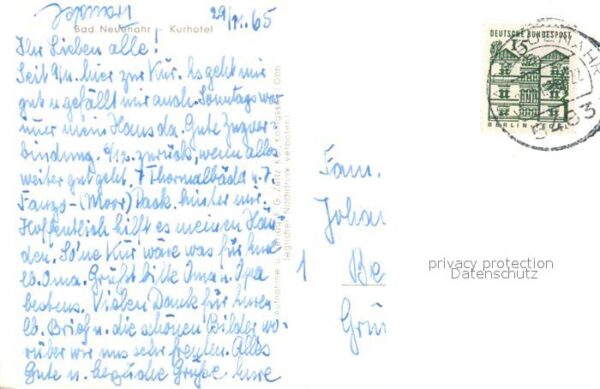 29/11.65
Bad Neuenahr Kurhotel
Ihr Lieben alle!
Seit 9/11. hier zur Kur. Es geht mir
gut u. gefällt mir auch. Sonntags war
immer mein Hans da. Gute Zugver-
bindung. 9/12. zurück, wenn alles
weiter gut geht. 7 Thermalbäder u. 7
Fango-(Moor) Pack. hinter mir.
Hoffentlich hilft es meinen Hän-
den. So'ne Kur wäre was für Eure
lb. Oma. Grüßt bitte Oma u. Opa
bestens. Vielen Dank für Euren
lb. Brief u. die schönen Bilder wo-
rüber wir uns sehr freuten. Alles
Gute u. herzliche Grüße Eure
Aufnahme u. Verlag
Jeglicher Nachdruck verboten!
DEUTSCHE BUNDESPOST
15
BERLIN
5483
Fam.
Johan
1 Be
Grün
privacy protection
Datenschutz